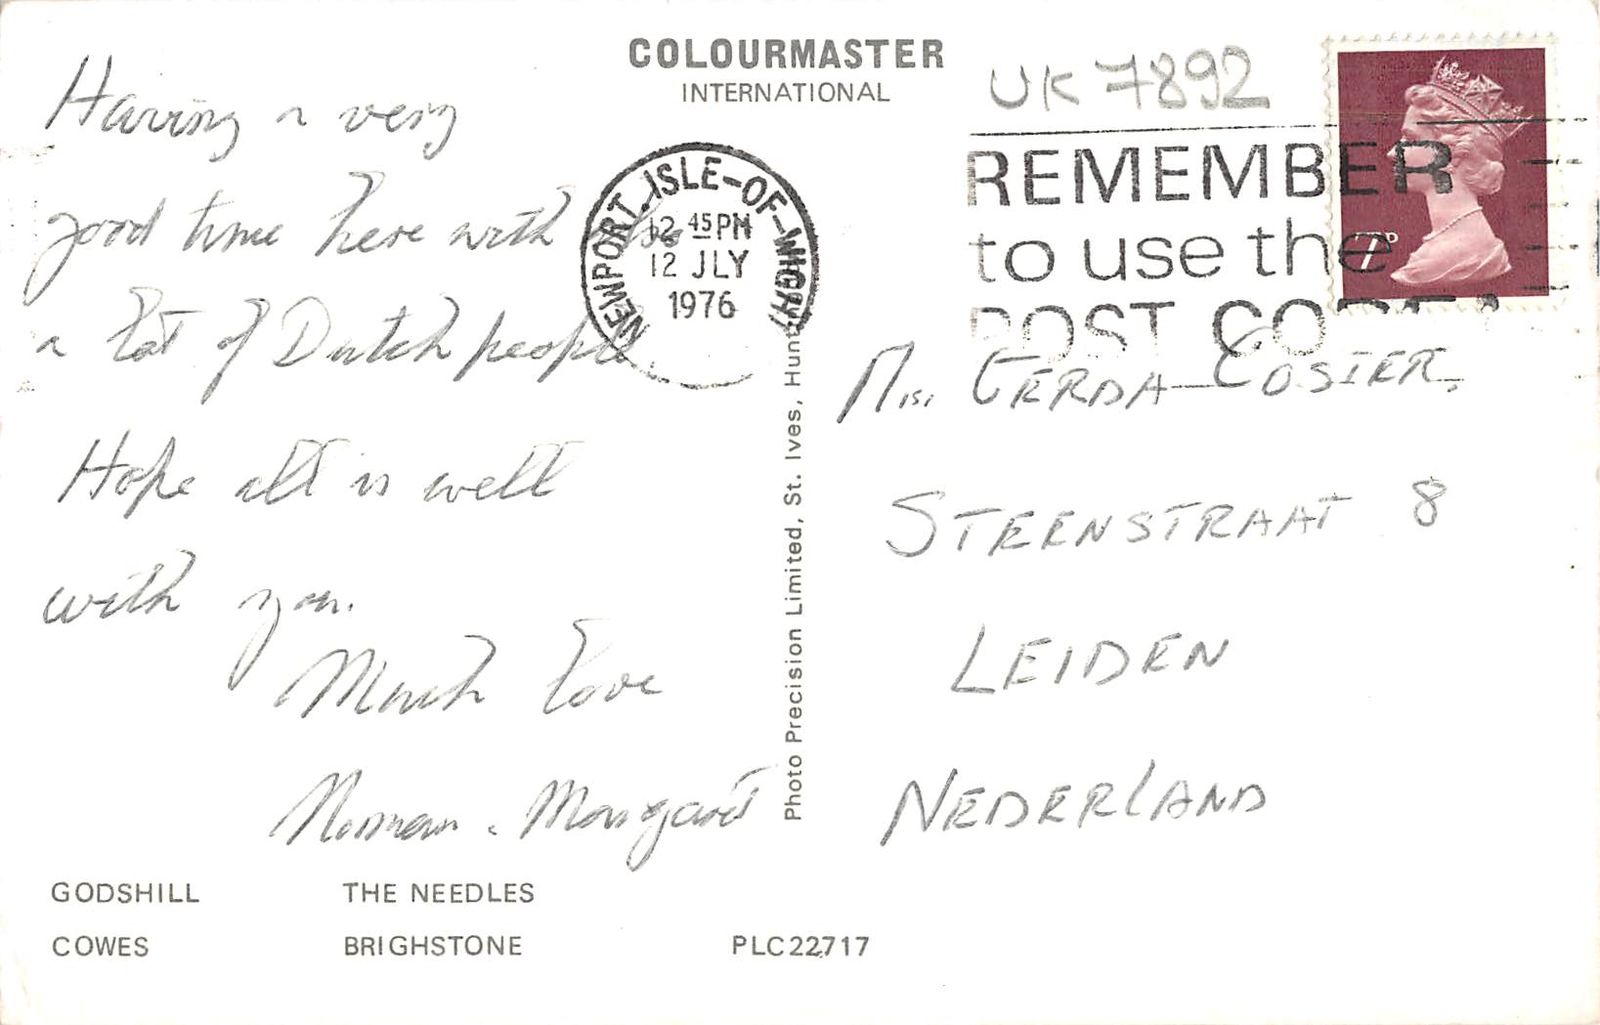 COLOURMASTER
INTERNATIONAL
UK 7892
NEWPORT. ISLE-OF-WIGHT
12 45 PM
12 JLY
1976
REMEMBER
to use the
POST CODE
7P
Having a very
good time here with
a lot of Dutch people.
Hope all is well
with you.
Much love
Norman. Margaret
Mis. GERDA COSIER,
STEENSTRAAT 8
LEIDEN
NEDERLAND
Photo Precision Limited, St. Ives,
GODSHILL THE NEEDLES
COWES BRIGHSTONE PLC22717